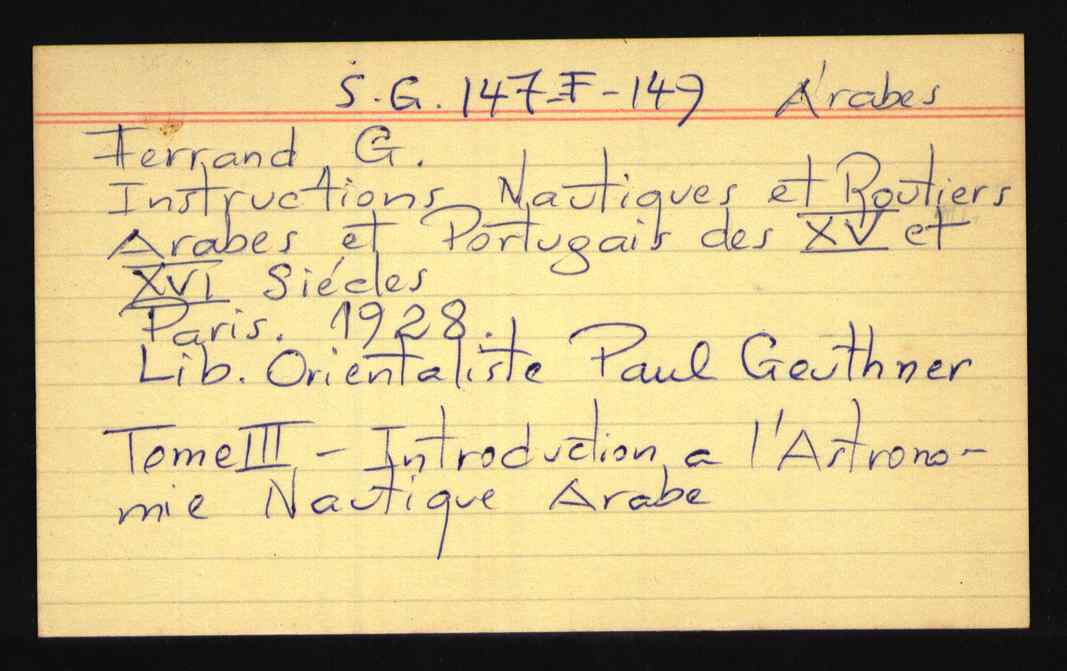 S.G. 147-F-149 Arabes
Ferrand, G.
Instructions Nautiques et Routiers
Arabes et Portugais des XV et
XVI Siécles
Paris. 1928.
Lib. Orientaliste Paul Geuthner
Tome III - Introduction a l'Astrono-
mie Nautique Arabe